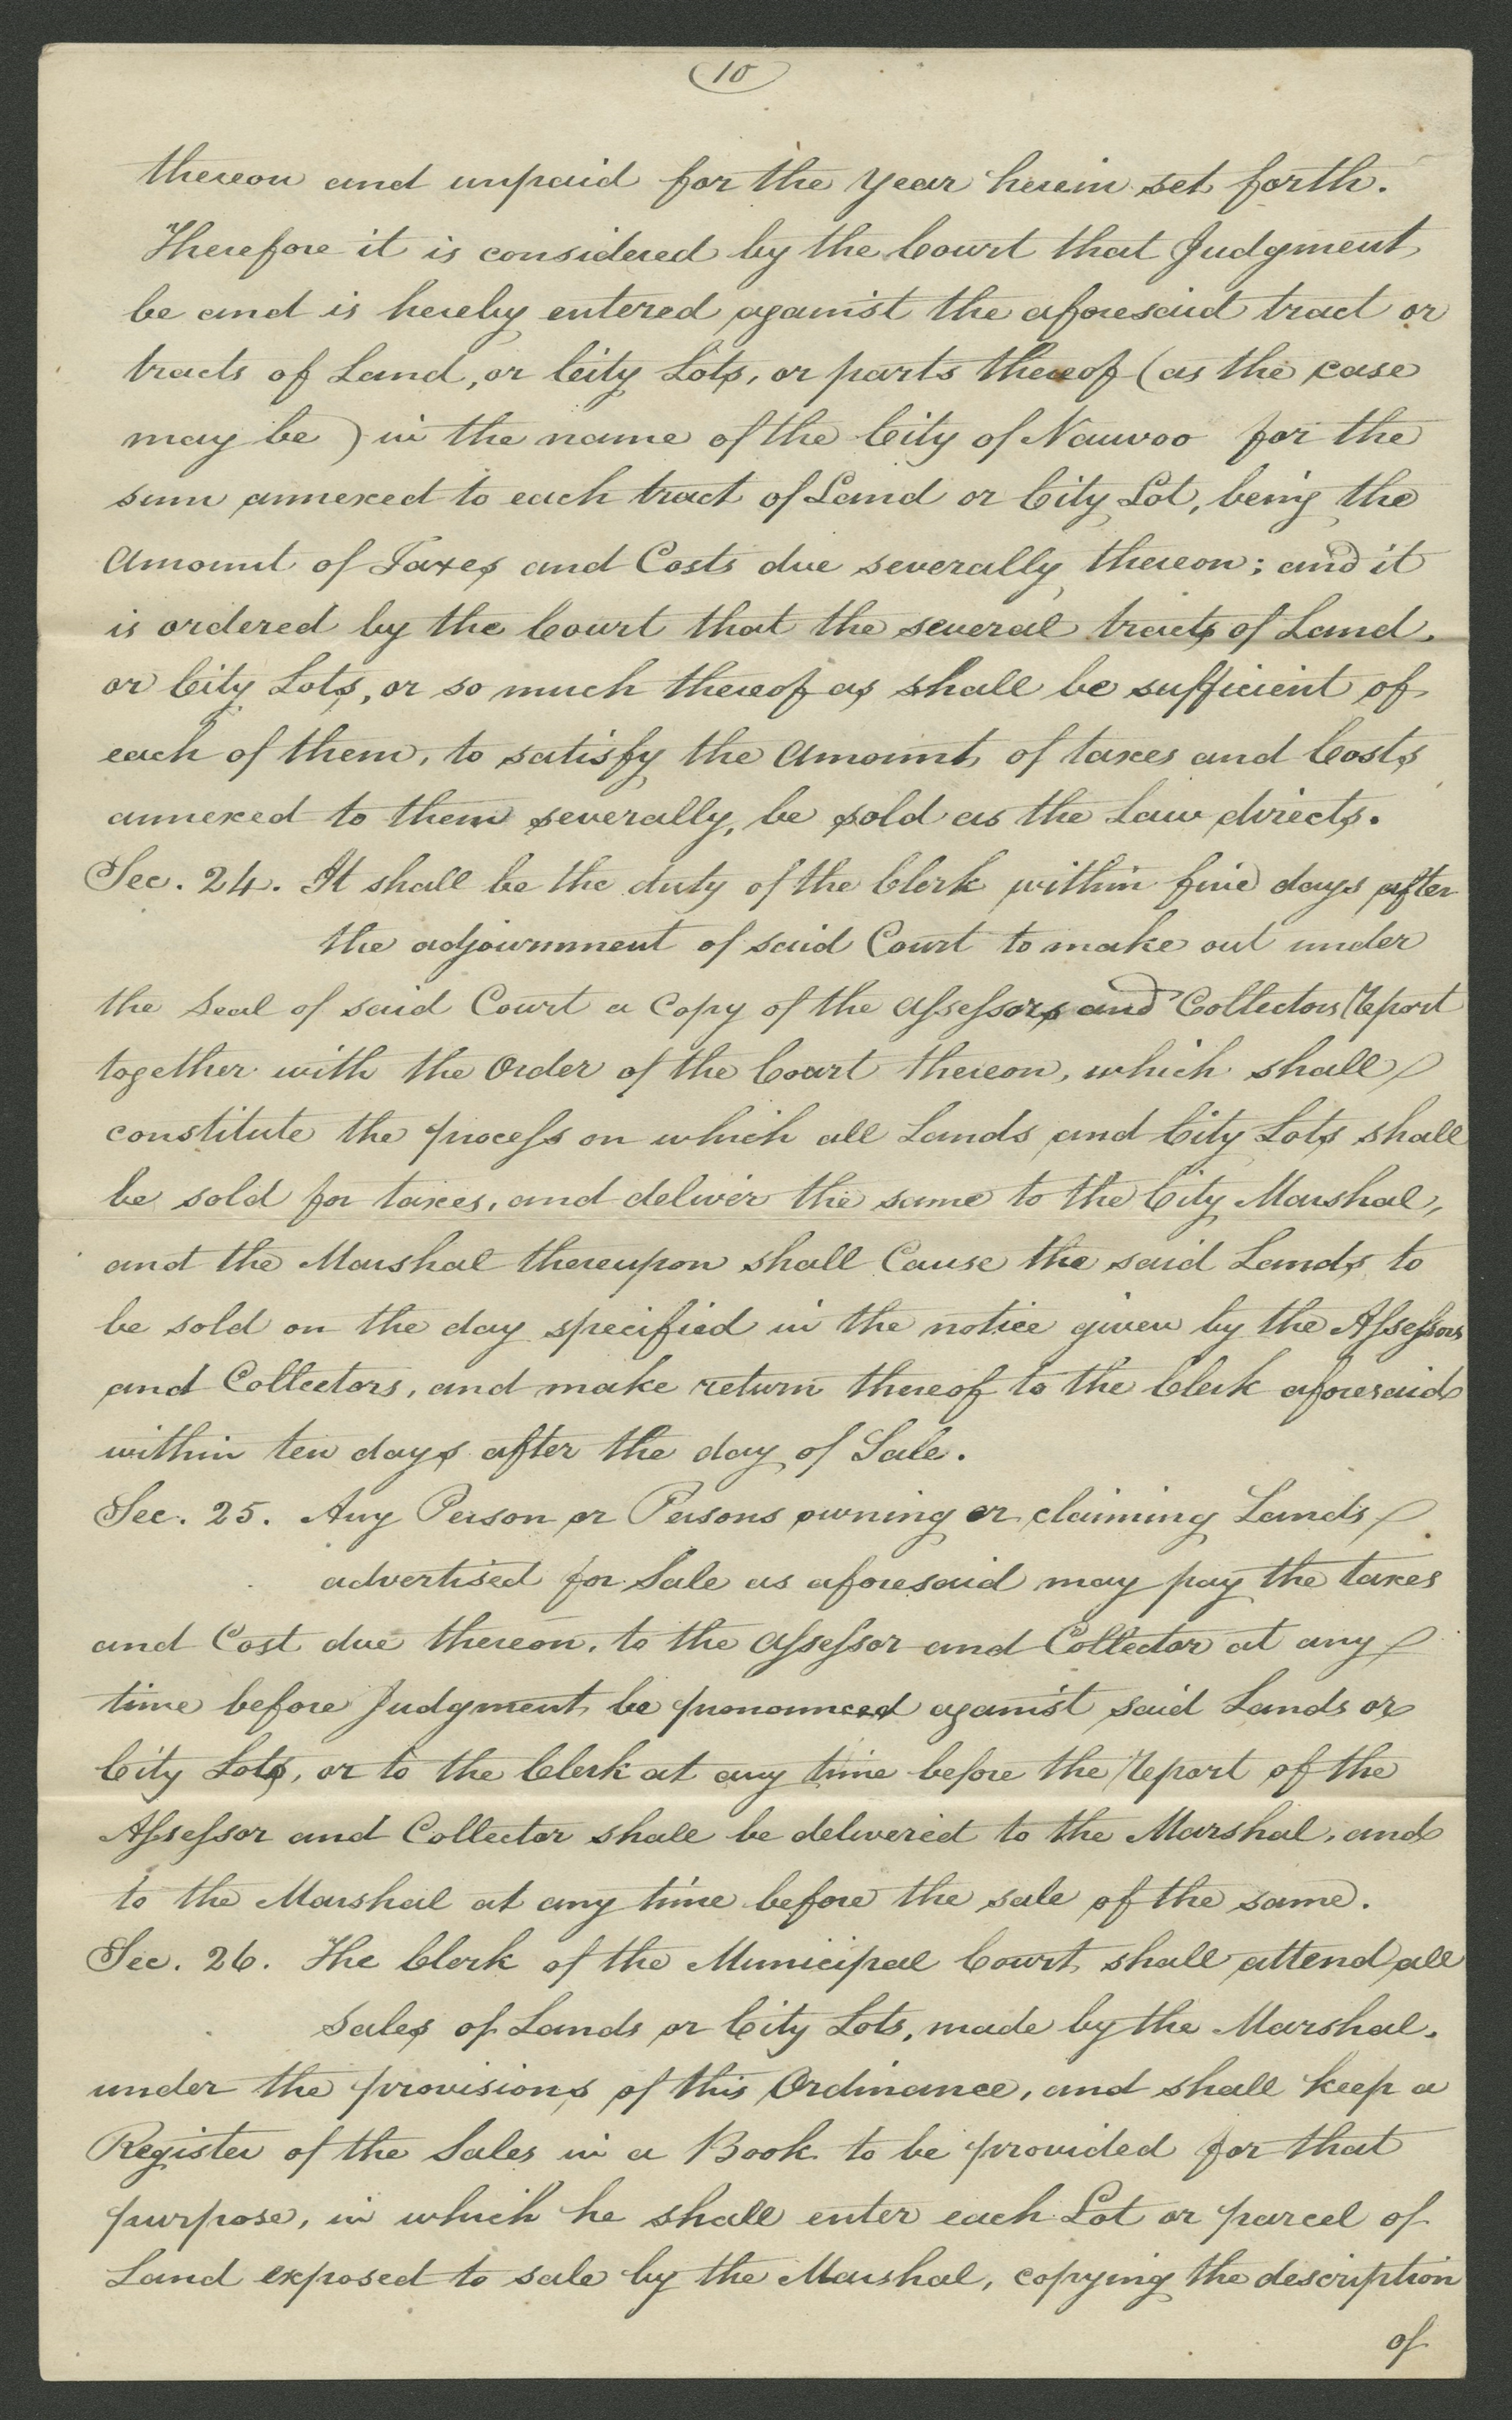 10
thereon and unpaid for the year herein set forth.
Therefore it is considered by the Court that Judgment
be and is hereby entered against the aforesaid tract or
tracts of Land, or City Lots, or parts thereof (as the case
may be) in the name of the City of Nauvoo for the
sum annexed to each tract of Land or City Lot, being the
Amount of Taxes and Costs due severally thereon; and it
is ordered by the Court that the several tracts of Land,
or City Lots, or so much thereof as shall be sufficient of
each of them, to satisfy the Amount of taxes and Costs
annexed to them severally, be sold as the Law directs.
Sec. 24. It shall be the duty of the Clerk within five days after
the adjournment of said Court to make out under
the Seal of said Court a Copy of the Assessors and Collectors Report
together with the Order of the Court thereon, which shall
constitute the process on which all Lands and City Lots shall
be sold for taxes, and deliver the same to the City Marshal,
and the Marshal thereupon shall Cause the said Lands to
be sold on the day specified in the notice given by the Assessors
and Collectors, and make return thereof to the Clerk aforesaid
within ten days after the day of Sale.
Sec. 25. Any Person or Persons owning or claiming Lands
advertised for Sale as aforesaid may pay the taxes
and Cost due thereon, to the Assessor and Collector at any
time before Judgment be pronounced against said Lands or
City Lots, or to the Clerk at any time before the Report of the
Assessor and Collector shall be delivered to the Marshal, and
to the Marshal at any time before the sale of the same.
Sec. 26. The Clerk of the Municipal Court shall attend all
Sales of Lands or City Lots, made by the Marshal.
under the provisions of this Ordinance, and shall keep a
Register of the Sales in a Book to be provided for that
purpose, in which he shall enter each Lot or parcel of
Land exposed to sale by the Marshal, copying the description
of